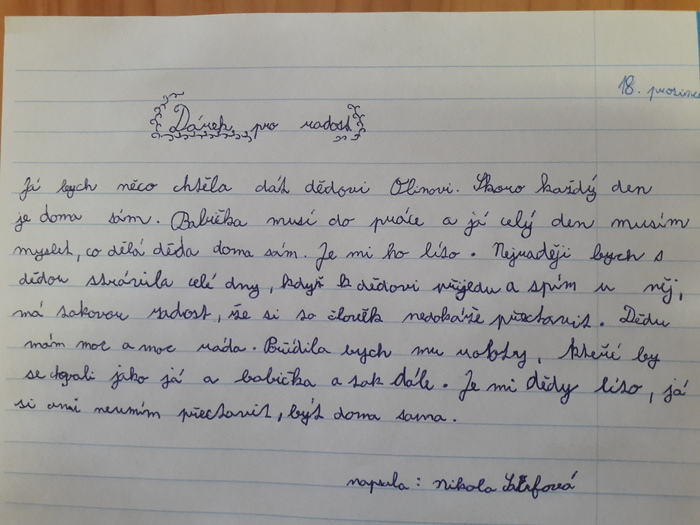 18. prosince
Dárek pro radost
Já bych něco chtěla dát dědovi Olinovi. Skoro každý den
je doma sám. Babička musí do práce a já celý den musím
myslet, co dělá děda doma sám. Je mi ho líto. Nejraději bych s
dědou strávila celé dny, když k dědovi přijedu a spím u něj,
má takovou radost, že si to člověk nedokáže přectavit. Dědu
mám moc a moc ráda. Pořídila bych mu roboty, kteří by
se chovali jako já a babička a tak dále. Je mi dědy líto, já
si ani neumím přectavit, být doma sama.
napsala: Nikola